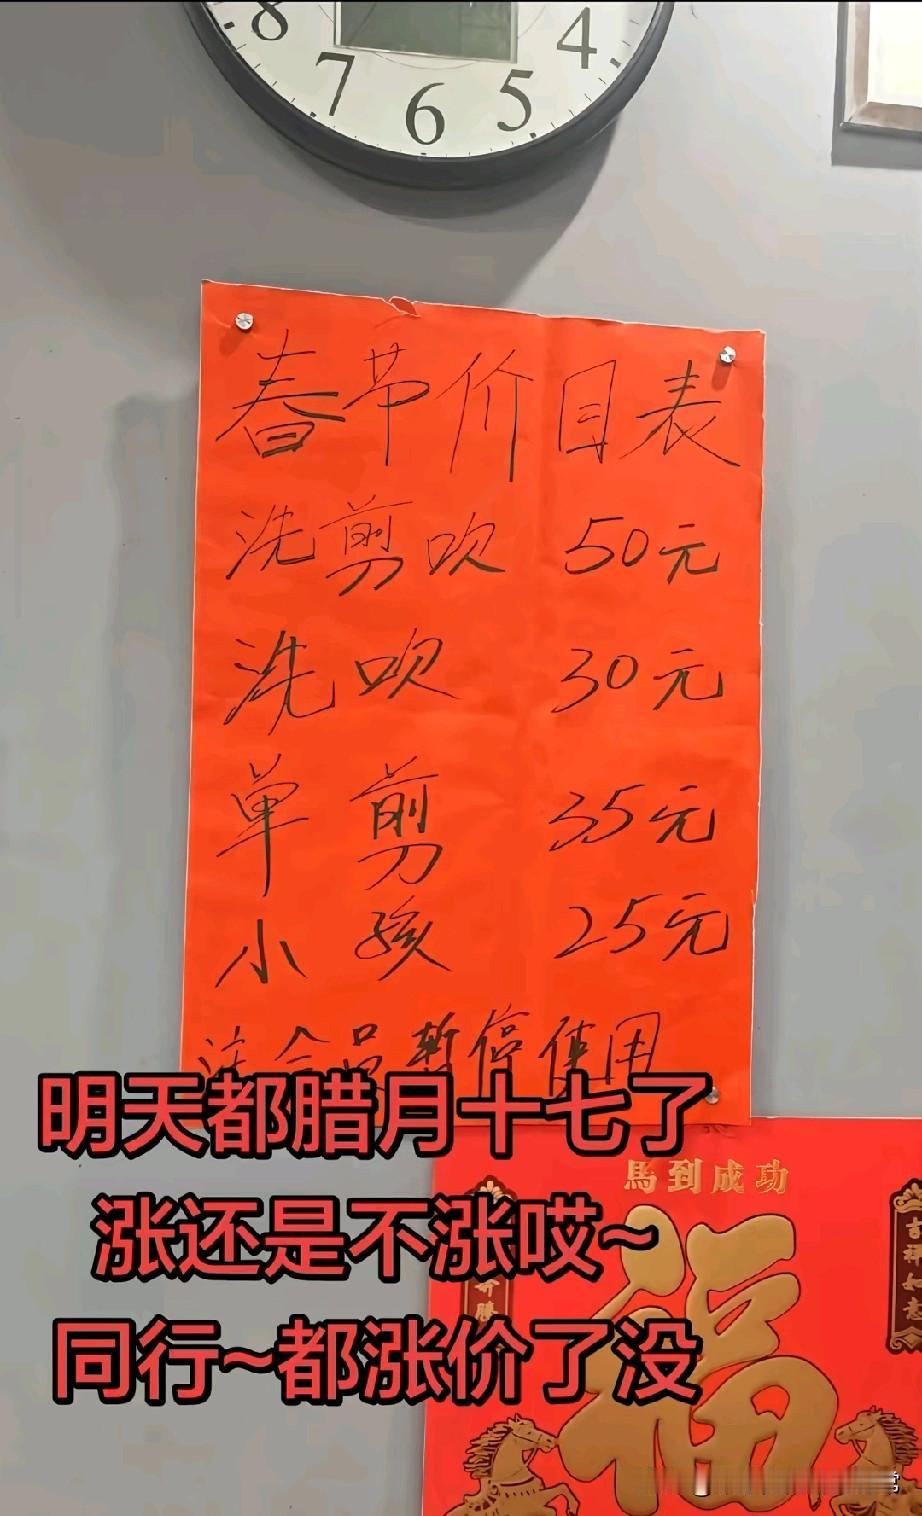 8 7 6 5 4
春节价目表
洗剪吹 50元
洗吹 30元
单剪 35元
小孩 25元
注会员暂停使用
明天都腊月十七了
涨还是不涨哎~
同行~都涨价了没
馬到成功
福
吉祥如意